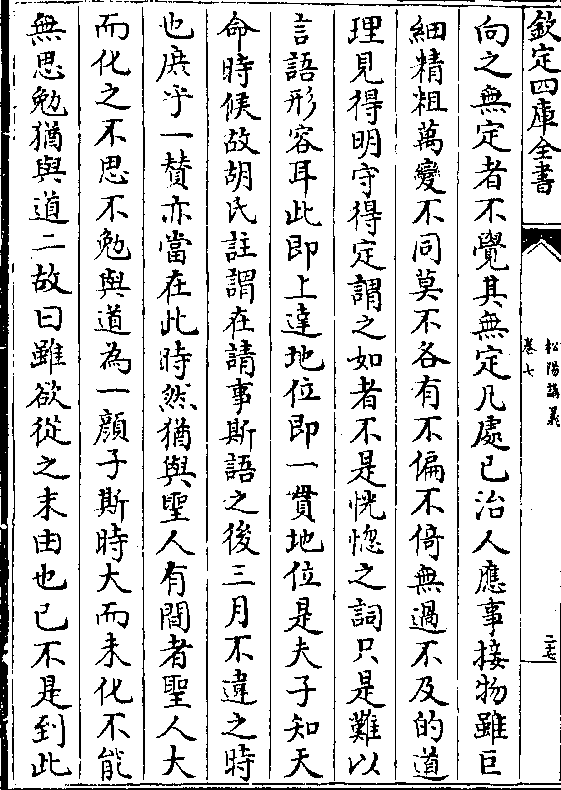 欽定四庫全書
松陽講義
卷七
二七
向之無定者不覺其無定凡處已治人應事接物雖巨
細精粗萬變不同莫不各有不偏不倚無過不及的道
理見得明守得定謂之如者不是恍惚之詞只是難以
言語形容耳此即上達地位即一貫地位是夫子知天
命時候故胡氏註謂在請事斯語之後三月不違之時
也庶乎一賛亦當在此時然猶與聖人有間者聖人大
而化之不思不勉與道為一顔子斯時大而未化不能
無思勉猶與道二故曰雖欲從之末由也已不是到此